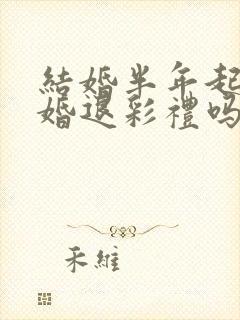 結婚半年起
婚退彩禮嗎
禾維